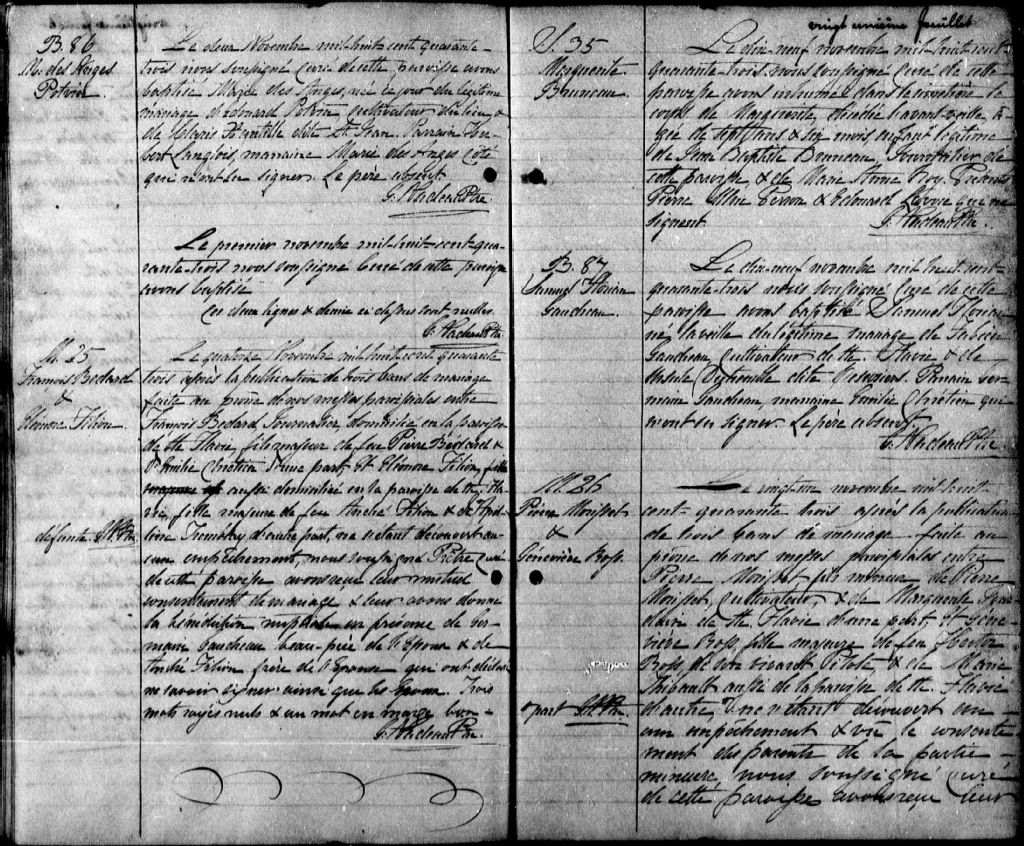 B. 86
M. des Anges
Potvin
Le deux Novembre mil huit cent quarante-
trois nous soussigné Curé de cette paroisse avons
baptisé Marie des Anges, née le jour du légitime
mariage d'Edouard Potvin cultivateur d'u lieu &
de Marie dite St Jean. Parrain Hu-
bert Langlois, marraine Marie des Anges Côté
qui n'ont su signer. Le père absent
G. Nadeau Ptre.
Le premier novembre mil huit cent qua-
rante-trois nous soussigné Curé de cette paroisse
avons baptisé
Ces deux lignes & demie ci dessus sont nulles.
G. Nadeau Ptre
M. 25
Francois Bedard
&
Eléonore Filion.
Le quatorze Novembre mil huit cent quarante
trois après la publication de trois bans de mariage
faite au prône de nos messes paroissiales entre
François Bedard, Journalier domicilié en la paroisse
de Ste Flavie, fils majeur de feu Pierre Bedard &
d'Emilie Chretien d'une part, Et Eléonore Filion, fille
aussi domiciliée en la paroisse de Ste Fla-
vie, fille majeure de feu André Filion & de
Tremblay d'autre part, ne s'étant découvert au-
cun empêchement, nous soussigné Prêtre Curé
de cette paroisse avons reçu leur mutuel
consentement de mariage & leur avons donné
la bénédiction nuptiale en présence de Ger-
main Gaucheau beau-père de l'Epoux & de
André Filion frère de l'Epouse qui ont déclaré
ne savoir signer ainsi que les Epoux. Trois
mots rayés nuls & un mot en marge bon
G. Nadeau Ptre.
défunte G.N. Ptre
vingt unième feuillet
S. 35
Marguerite
Bruneau
Le dix-neuf novembre mil huit cent
quarante-trois nous soussigné Curé de cette
paroisse avons inhumé dans le cimetière le
corps de Marguerite, décédée l'avant veille, â-
gée de sept ans & six mois, enfant légitime
de Jean Baptiste Bruneau, Journalier de
cette paroisse, & de Marie Anne Roy. Présents
Pierre Perron & Edouard qui ne
signent.
G. Nadeau Ptre.
B. 87
Samuel Florian
Gaucheau.
Le dix-neuf novembre mil huit cent
quarante-trois nous soussigné Curé de cette
paroisse avons baptisé Samuel Florian
né la veille du légitime mariage de Fabien
Gaucheau, Cultivateur de Ste Flavie & de
Ursule dite Desrosiers. Parrain Ger-
main Gaucheau, marraine Emilie Chrétien qui
n'ont su signer. Le père absent
G. Nadeau Ptre
M. 26
Pierre Morisset
&
Geneviève Ross.
Le vingt un novembre mil huit
cent quarante trois après la publication
de trois bans de mariage faite au
prône de nos messes paroissiales entre
Pierre Morisset fils mineur de Pierre
Morisset, Cultivateur, & de Marguerite
de Ste Flavie d'une part & Gene-
viève Ross fille majeure de feu Hector
Ross, de son vivant Pilote, & de Marie
Thibault aussi de la paroisse de Ste. Flavie
d'autre, & ne s'étant découvert au-
cun empêchement & vu le consente-
ment des parents de la partie
mineure, nous soussigné curé
de cette paroisse avons reçu leur
x part G.N. Ptre.